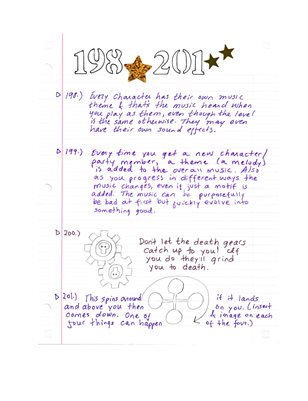 198 201
198.) Every character has their own music
theme & thats the music heard when
you play as them, even though the level
is the same otherwise. They may even
have their own sound effects.
199.) Every time you get a new character/
party member, a theme (a melody)
is added to the overall music. Also
as you progress in different ways the
music changes, even if just a motif is
added. The music can be purposefully
be bad at first but quickly evolve into
something good.
200.) Dont let the death gears
catch up to you! If
you do they'll grind
you to death.
201.) This spins around
and above you then
comes down. One of
four things can happen
if it lands
on you. (insert
& image on each
of the four.)